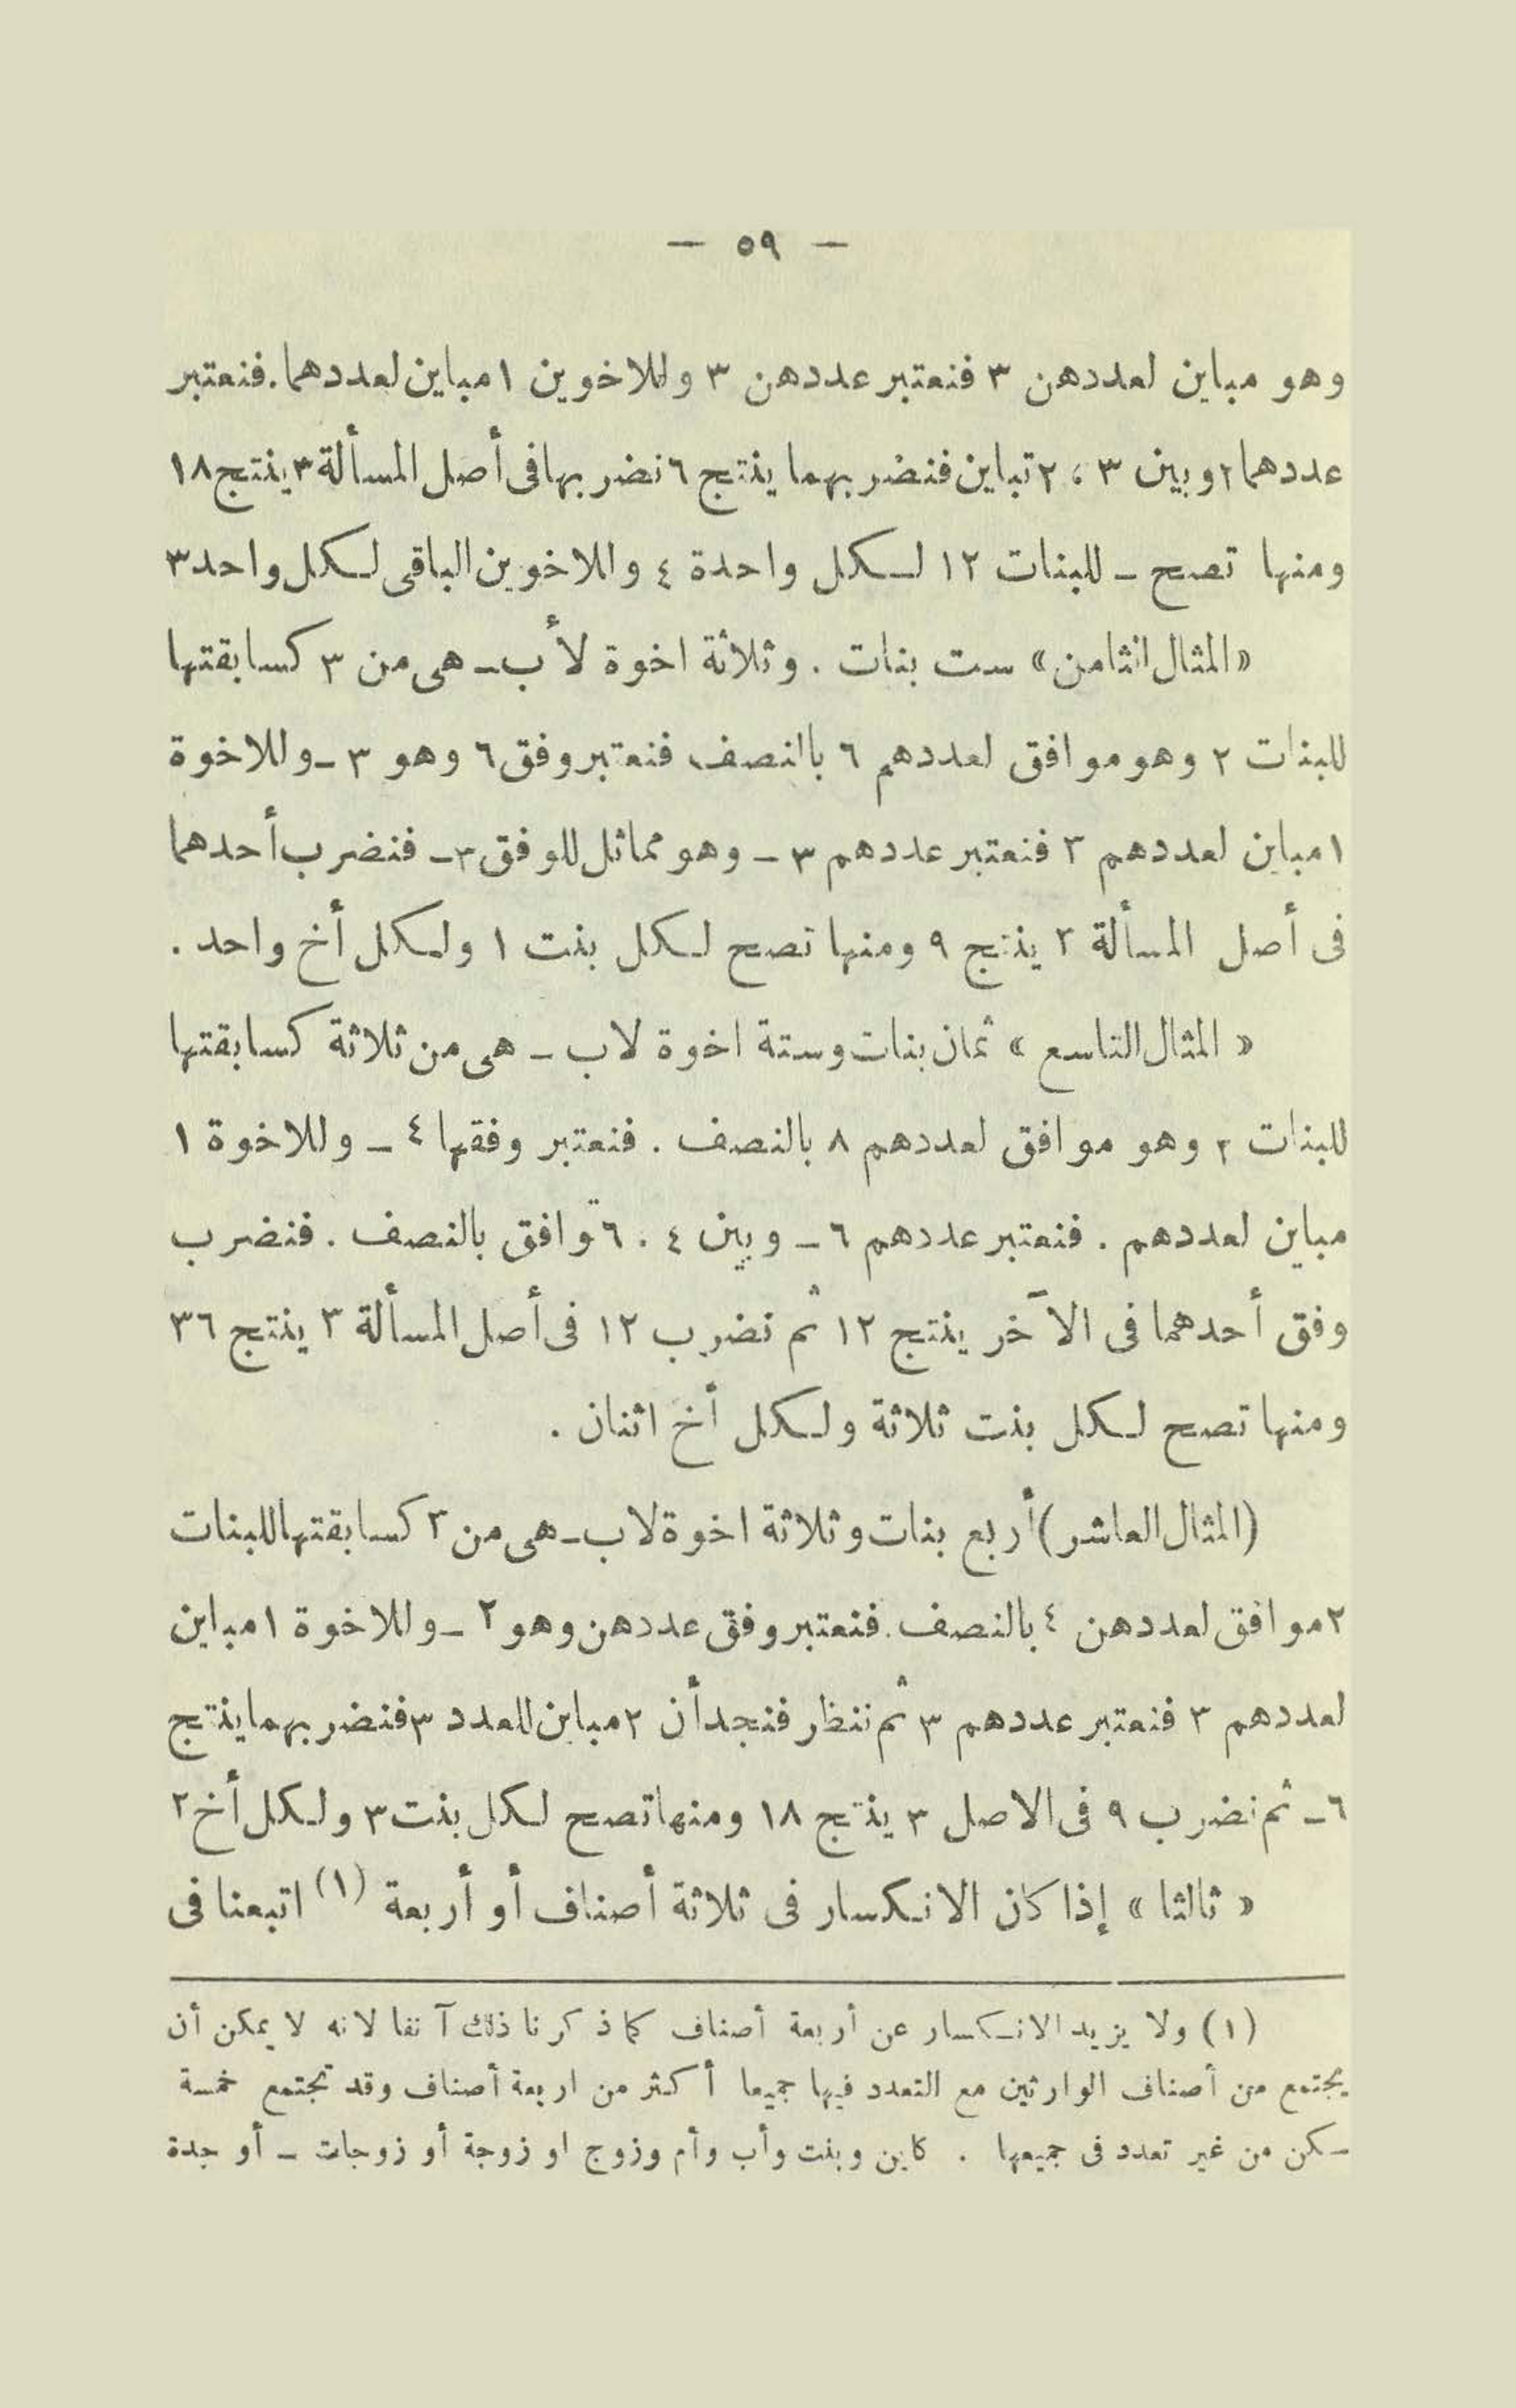 — ٥٩ —
وهو مباين لعددهن ٣ فنعتبر عددهن ٣ وللاخوين ١ مباين لعددهما. فنعتبر
عددهما ٢ وبين ٣ ، ٢ تباين فنضر بهما ينتج ٦ نضر بها فى أصل المسألة ٣ ينتج ١٨
ومنها تصح ـ للبنات ١٢ لكل واحدة ٤ وللاخوين الباقى لكل واحد ٣
« المثال الثامن » ست بنات . وثلاثة اخوة لأب ـ هى من ٣ كسابقتها
للبنات ٢ وهو موافق لعددهم ٦ بالنصف فنعتبر وفق ٦ وهو ٣ ـ وللاخوة
١ مباين لعددهم ٣ فنعتبر عددهم ٣ ـ وهو مماثل للوفق ٣ ـ فنضرب أحدهما
فى أصل المسألة ٣ ينتج ٩ ومنها تصح لكل بنت ١ ولكل أخ واحد .
« المثال التاسع » ثمان بنات وستة اخوة لاب ـ هى من ثلاثة كسابقتها
للبنات ٢ وهو موافق لعددهم ٨ بالنصف . فنعتبر وفقها ٤ ـ وللاخوة ١
مباين لعددهم . فنعتبر عددهم ٦ ـ وبين ٤ . ٦ توافق بالنصف . فنضرب
وفق أحدهما فى الآخر ينتج ١٢ ثم نضرب ١٢ فى أصل المسألة ٣ ينتج ٣٦
ومنها تصح لكل بنت ثلاثة ولكل أخ اثنان .
(المثال العاشر) أربع بنات وثلاثة اخوة لاب ـ هى من ٣ كسابقتها للبنات
٢ موافق لعددهن ٤ بالنصف . فنعتبر وفق عددهن وهو ٢ ـ وللاخوة ١ مباين
لعددهم ٣ فنعتبر عددهم ٣ ثم ننظر فنجد أن ٢ مباين للعدد ٣ فنضر بهما ينتج
٦ ـ ثم نضرب ٩ فى الاصل ٣ ينتج ١٨ ومنها تصح لكل بنت ٣ ولكل أخ ٢
« ثالثا » إذا كان الانكسار فى ثلاثة أصناف أو أربعة (١) اتبعنا فى
(١) ولا يزيد الانكسار عن أربعة أصناف كما ذكرنا ذلك آنفا لانه لا يمكن أن
يجتمع من أصناف الوارثين مع التعدد فيها جميعا أكثر من اربعة أصناف وقد تجتمع خمسة
ـكن من غير تعدد فى جميعها . كابن وبنت وأب وأم وزوج او زوجة أو زوجات ـ أو جدة